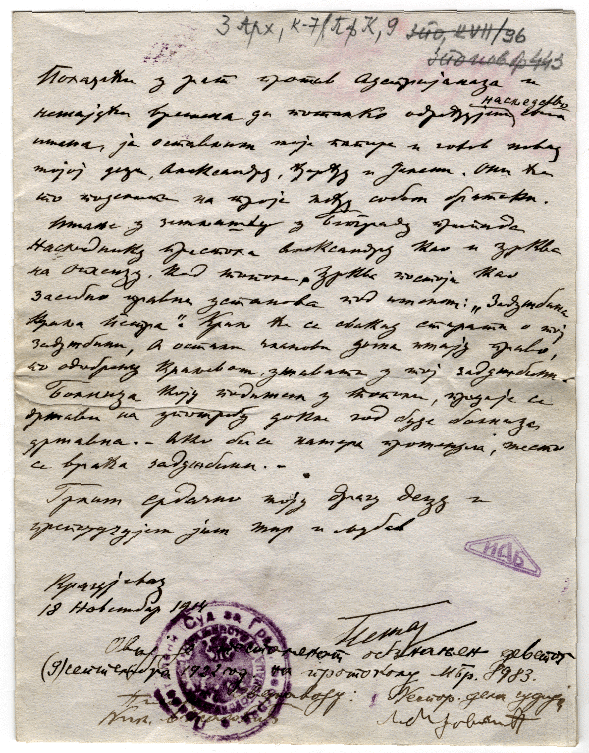 З Арх, К-7/ПрК, 9 ЗПО, XVII/96
ЗПО нов бр 443
Полазећи у рат против Аустријанаца и
немајући времена да потанко одређујем наследство
имања, ја остављам моје папире и готов новац
мојој деци, Александру, Ђорђу и Јелени. Они ће
то поделити на троје међу собом братски.
Имање у земљишту у Београду припада
Наследнику престола Александру као и Црква
на Опленцу. Код Тополе, Црква постоји као
засебна правна установа под именом: „Задужбина
Краља Петра“. Краљ ће се свакад старати о тој
задужбини, а остали чланови дома имају право,
по одобрењу Краљевом, у тој задужбини.
Болница коју подигнем у Тополи, предаје се
држави на употребу докле год буде болница
државна. – Ако би се намера променила, место
се враћа задужбини. –
Грлим срдачно моју драгу децу и
препоручујем јим мир и љубав
ИАБ
Крагујевац
18 Новембар 1914
Петар
Овај тестаменат обнањен девет
(9) септембра 1921 год. по протоколу Мбр. 8983.
деловођу: Неспор. дела судија